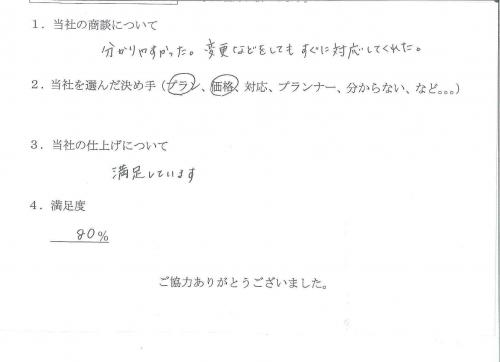 1．当社の商談について
分かりやすかった。変更などをしてもすぐに対応してくれた。
2．当社を選んだ決め手（プラン、価格、対応、プランナー、分からない、など。。。）
3．当社の仕上げについて
満足しています
4．満足度
80%
ご協力ありがとうございました。